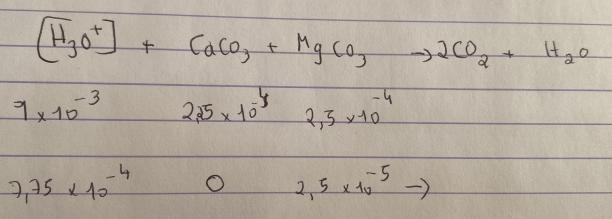 [H₃O⁺] + CaCO₃ + MgCO₃ → 2CO₂ + H₂O
9 × 10⁻³ 2,25 × 10⁻⁴ 2,5 × 10⁻⁴
7,75 × 10⁻⁴ 0 2,5 × 10⁻⁵ →